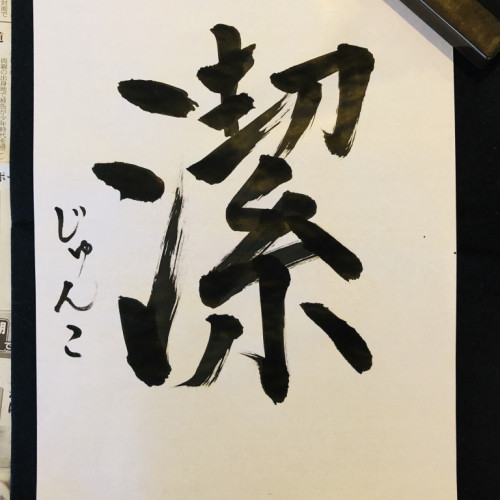 潔
じゅんこ